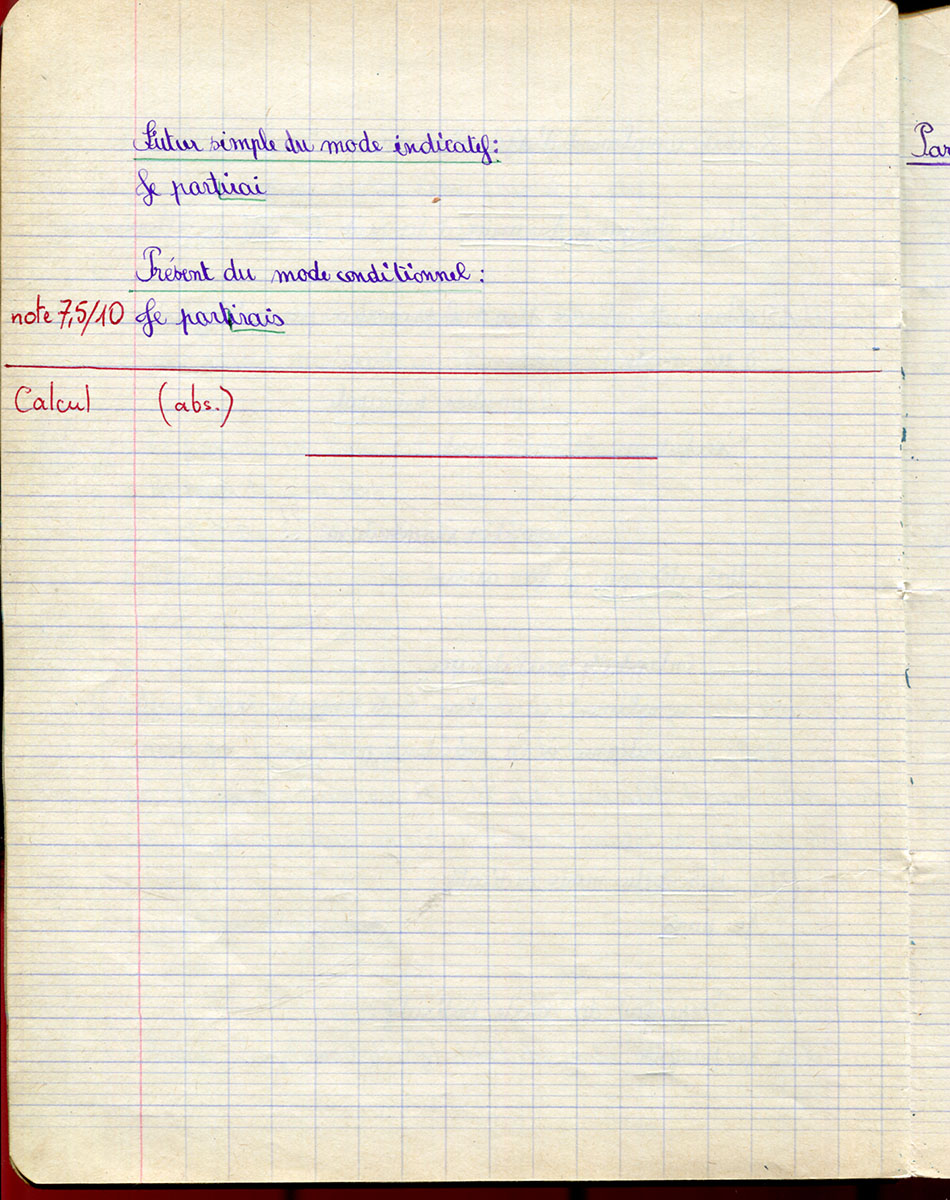 Futur simple du mode indicatif:
Je partirai
Présent du mode conditionnel :
note 7,5/10 Je partirais
Calcul (abs.)
Par